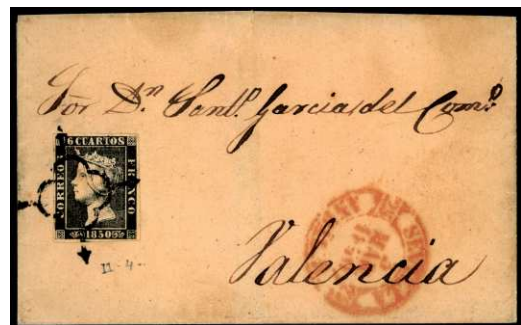 Sōr Dn. Santo. Garcia del Como.
6 CUARTOS
CORREOS
FRANCO
1850
11-4-
Valencia